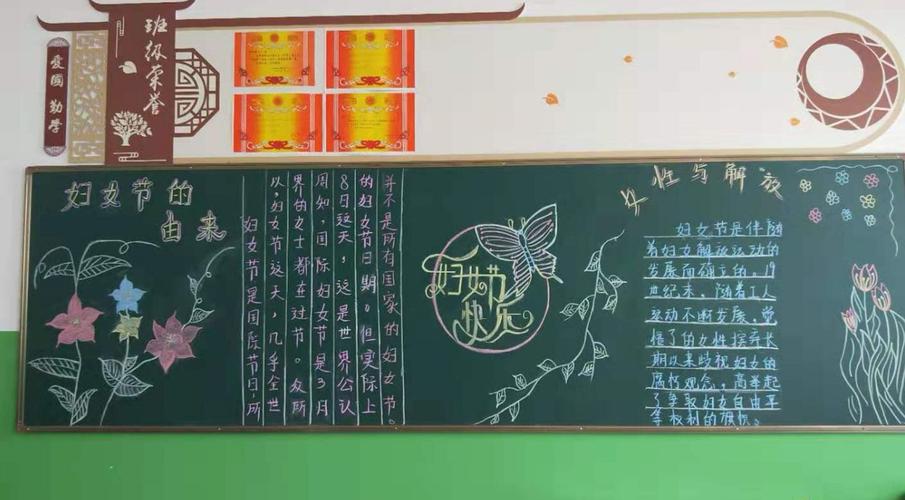 爱国 勤学
班级荣誉
妇女节的
由来
妇女节是国际节日,所
以,妇女节这天,几乎全世
界的女士都在过节。众所
周知,国际妇女节是3月
8日这天,这是世界公认
的妇女节日期。但实际上
并不是所有国家的妇女节。
妇女节
快乐
女性与解放
妇女节是伴随
着妇女解放运动的
发展而确立的。19
世纪末，随着工人
运动不断发展，觉
悟了的女性摈弃长
期以来歧视妇女的
腐朽观念，高举起
了争取妇女自由平
等权利的旗帜。